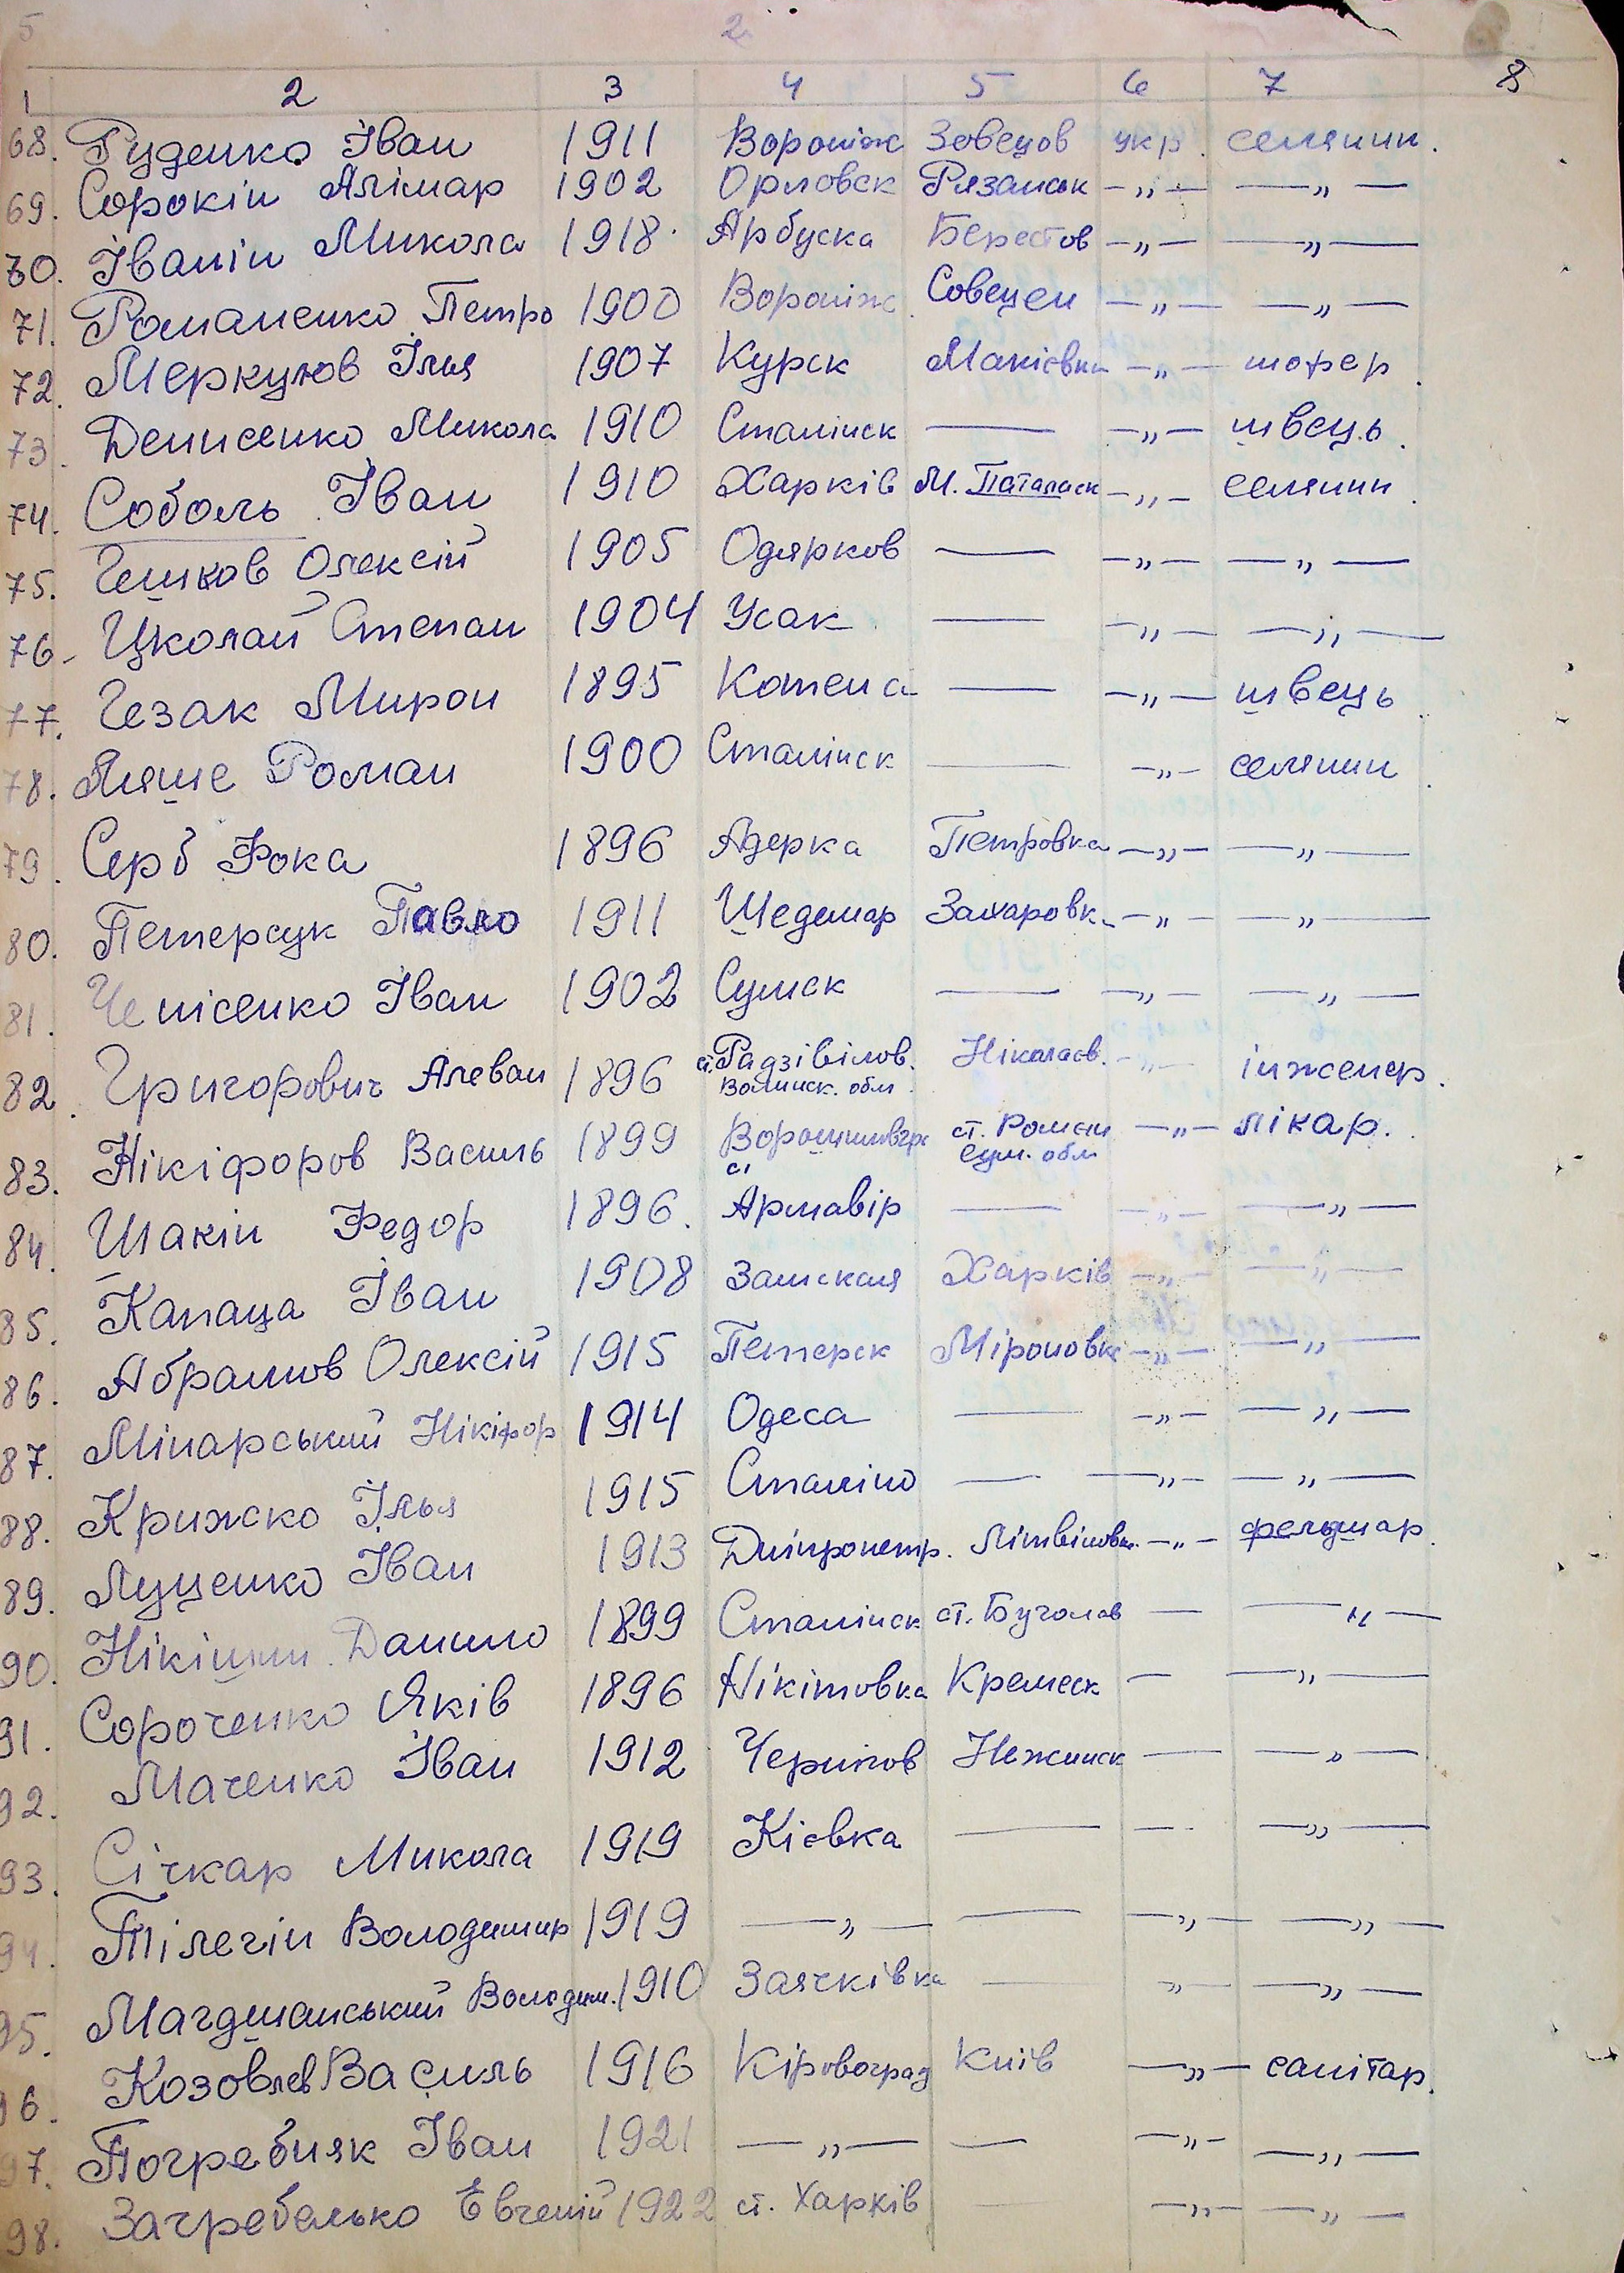 5 2
1 2 3 4 5 6 7 8
68. Руденко Іван 1911 Вороніж Зовецов укр. селянин.
69. Сорокін Алімар 1902 Орловск Рязанск —„— —„—
70. Іванін Микола 1918 Арбуска Берестов —„— —„—
71. Романенко Петро 1900 Вороніж Совецен —„— —„—
72. Меркулов Ілья 1907 Курск Макіївка —„— шофер.
73. Денисенко Микола 1910 Сталінск — —„— швець.
74. Соболь Іван 1910 Харків М. Паталаск —„— селянин.
75. Олексій 1905 Одярков — —„— —„—
76. Цколай Степан 1904 Усак — —„— —„—
77. Гезак Мирон 1895 Котена — —„— швець.
78. Ляше Роман 1900 Сталінск — —„— селянин.
79. Серб Фока 1896 Адерка Петровка —„— —„—
80. Петерсук Павло 1911 Шедемар Захаровк. —„— —„—
81. Іван 1902 Сумск — —„— —„—
82. Григорович Алеван 1896 ст. Радзівілов. Ніколаєв. —„— інженер.
Волинск. обл.
83. Нікіфоров Василь 1899 Ворошиловгр ст. Ромєн —„— лікар.
Сум. обл
84. Шакін Федор 1896. Армавір — —„— —„—
85. Капаца Іван 1908 Замская Харків —„— —„—
86. Абрамов Олексій 1915 Петерск Міроновка —„— —„—
87. Мінарський Нікіфор 1914 Одеса — —„— —„—
88. Крижско Ілья 1915 Сталіно — —„— —„—
89. Луценко Іван 1913 Дніпропетр. Літвіновк. —„— фельдшар.
90. Нікішин Данило 1899 Сталінск ст. Буголов — —„—
91. Сороченко Яків 1896 Нікітовка Кремеск — —„—
92. Маченко Іван 1912 Чернигов Нежинск — —„—
93. Січкар Микола 1919 Кієвка — — —„—
94. Тілегін Володимир 1919 —„— — —„— —„—
95. Магдшанський Володим. 1910 Заячківка — „ —„—
96. Козовлєв Василь 1916 Кіровоград Київ —„— санітар.
97. Погребняк Іван 1921 —„— — —„— —„—
98. Загребелько Евгеній 1922 ст. Харків — —„— —„—